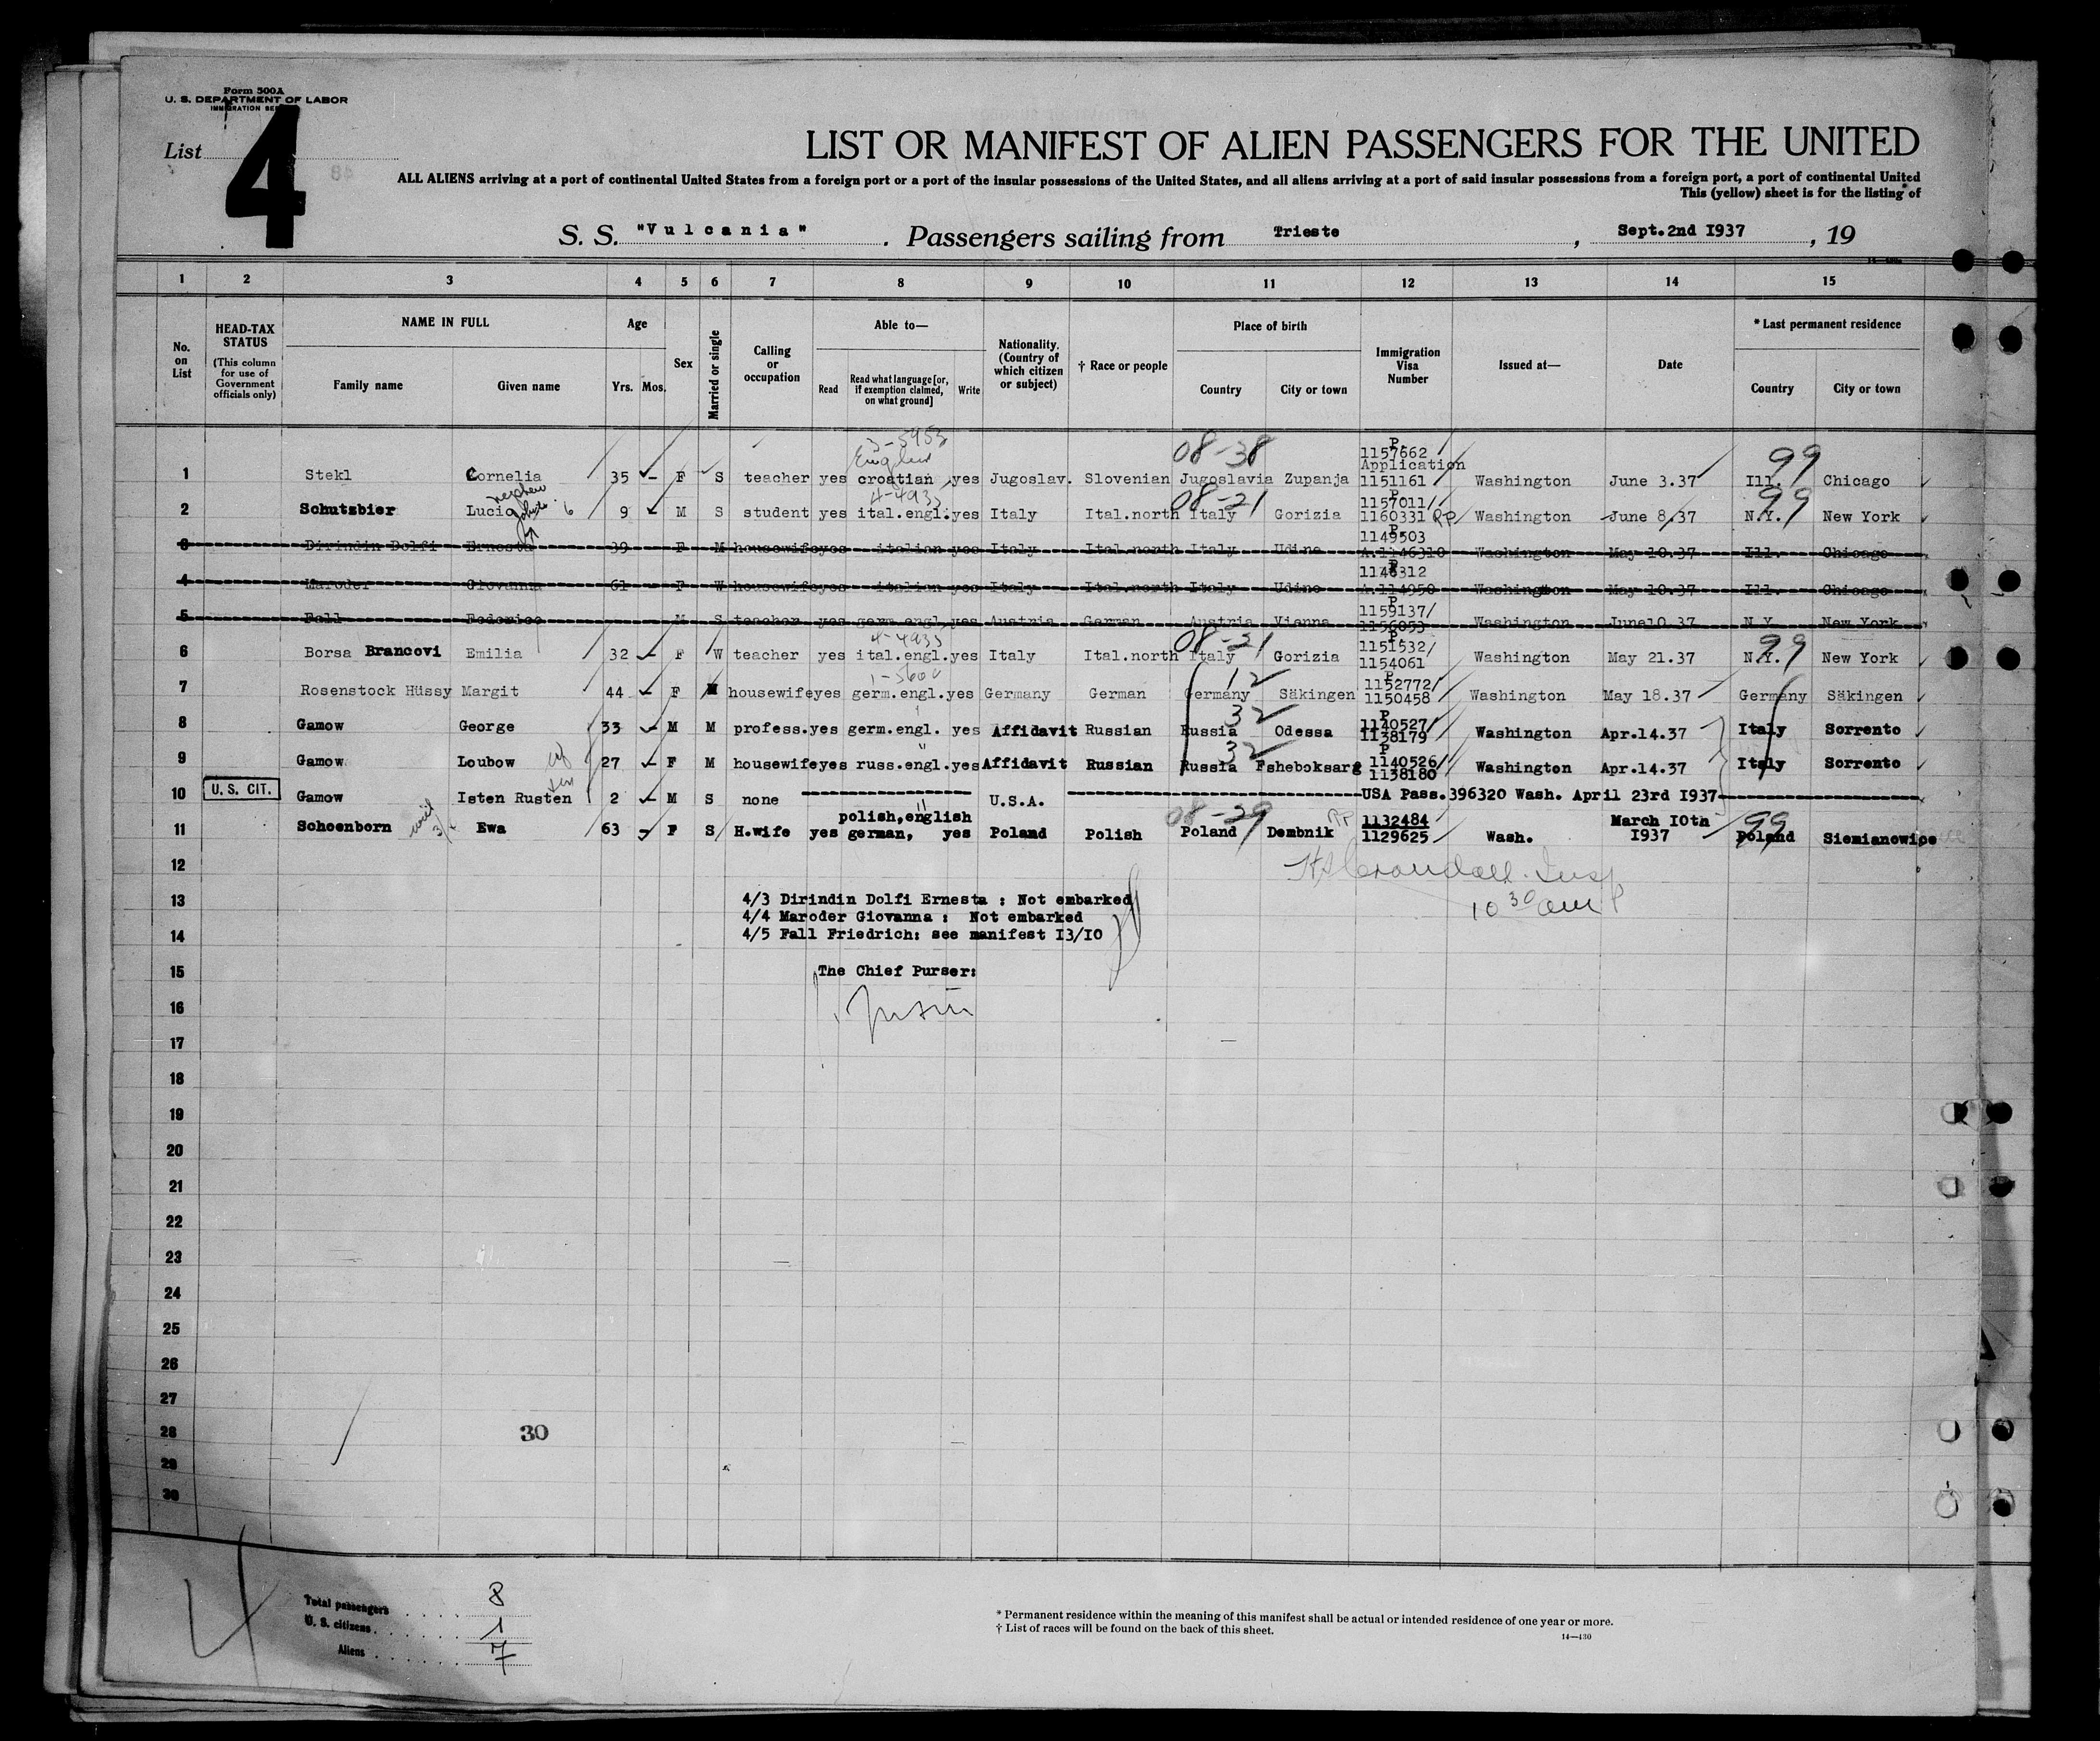 Form 500A
U. S. DEPARTMENT OF LABOR
IMMIGRATION
List 4
LIST OR MANIFEST OF ALIEN PASSENGERS FOR THE UNITED
ALL ALIENS arriving at a port of continental United States from a foreign port or a port of the insular possessions of the United States, and all aliens arriving at a port of said insular possessions from a foreign port, a port of continental United
This (yellow) sheet is for the listing of
S. S. "Vulcania" . Passengers sailing from Trieste , Sept.2nd I937 , 19
1 2 3 4 5 6 7 8 9 10 11 12 13 14 15
No. on List
HEAD-TAX STATUS (This column for use of Government officials only)
NAME IN FULL
Family name Given name
Age
Yrs. Mos.
Sex
Married or single
Calling or occupation
Able to—
Read Read what language [or, if exemption claimed, on what ground] Write
Nationality. (Country of which citizen or subject)
† Race or people
Place of birth
Country City or town
Immigration Visa Number
Issued at—
Date
* Last permanent residence
Country City or town
3-5953
English
08-38
P. 1157662
Application
99
1 Stekl Cornelia 35 - F S teacher yes croatian yes Jugoslav. Slovenian Jugoslavia Zupanja 1151161 Washington June 3.37 Ill. Chicago
nephew
4-4935
08-21
P. 1157011/
99
2 Schutzbier Lucio 6 9 M S student yes ital.engl. yes Italy Ital.north Italy Gorizia 1160331 RP Washington June 8.37 N.Y. New York
P. 1149503
3 Dirindin Dolfi Ernesta 39 F M housewife yes italian yes Italy Ital.north Italy Udine A.1146310 Washington May 10.37 Ill. Chicago
P. 1146312
4 Maroder Giovanna 61 - F W housewife yes italian yes Italy Ital.north Italy Udine A.114950 Washington May 10.37 Ill. Chicago
P. 1159137/
5 Fall Federico M S teacher yes germ.engl. yes Austria German Austria Vienna 1156053 Washington June10.37 N.Y. New York
4-4935
08-21
P. 1151532/
99
6 Borsa Brancovi Emilia 32 - F W teacher yes ital.engl. yes Italy Ital.north Italy Gorizia 1154061 Washington May 21.37 N.Y. New York
1-5600
12
P. 1152772/
7 Rosenstock Hüssy Margit 44 - F M housewife yes germ.engl. yes Germany German Germany Säkingen 1150458 Washington May 18.37 Germany Säkingen
32
P 1140527/
8 Gamow George 33 - M M profess. yes germ.engl. yes Affidavit Russian Russia Odessa 1138179 Washington Apr.14.37 Italy Sorrento
32
P 1140526/
9 Gamow Loubow wf 27 - F M housewife yes russ.engl. yes Affidavit Russian Russia Fsheboksarg 1138180 Washington Apr.14.37 Italy Sorrento
10 U. S. CIT. Gamow Isten Rusten 2 - M S none U.S.A. USA Pass.396320 Wash. April 23rd I937
polish,english
08-29
RP
1132484
March IOth
99
11 Schoenborn Ewa 63 - F S H.wife yes german, yes Poland Polish Poland Dembnik 1129625 Wash. I937 Poland Siemianowice
12
10 30 am
13 4/3 Dirindin Dolfi Ernesta : Not embarked
4/4 Maroder Giovanna : Not embarked
14 4/5 Fall Friedrich: see manifest I3/IO
15 The Chief Purser:
16
17
18
19
20
21
22
23
24
25
26
27
28 30
29
30
4
Total passengers 8
U. S. citizens 1
Aliens 7
* Permanent residence within the meaning of this manifest shall be actual or intended residence of one year or more.
† List of races will be found on the back of this sheet.
14—430